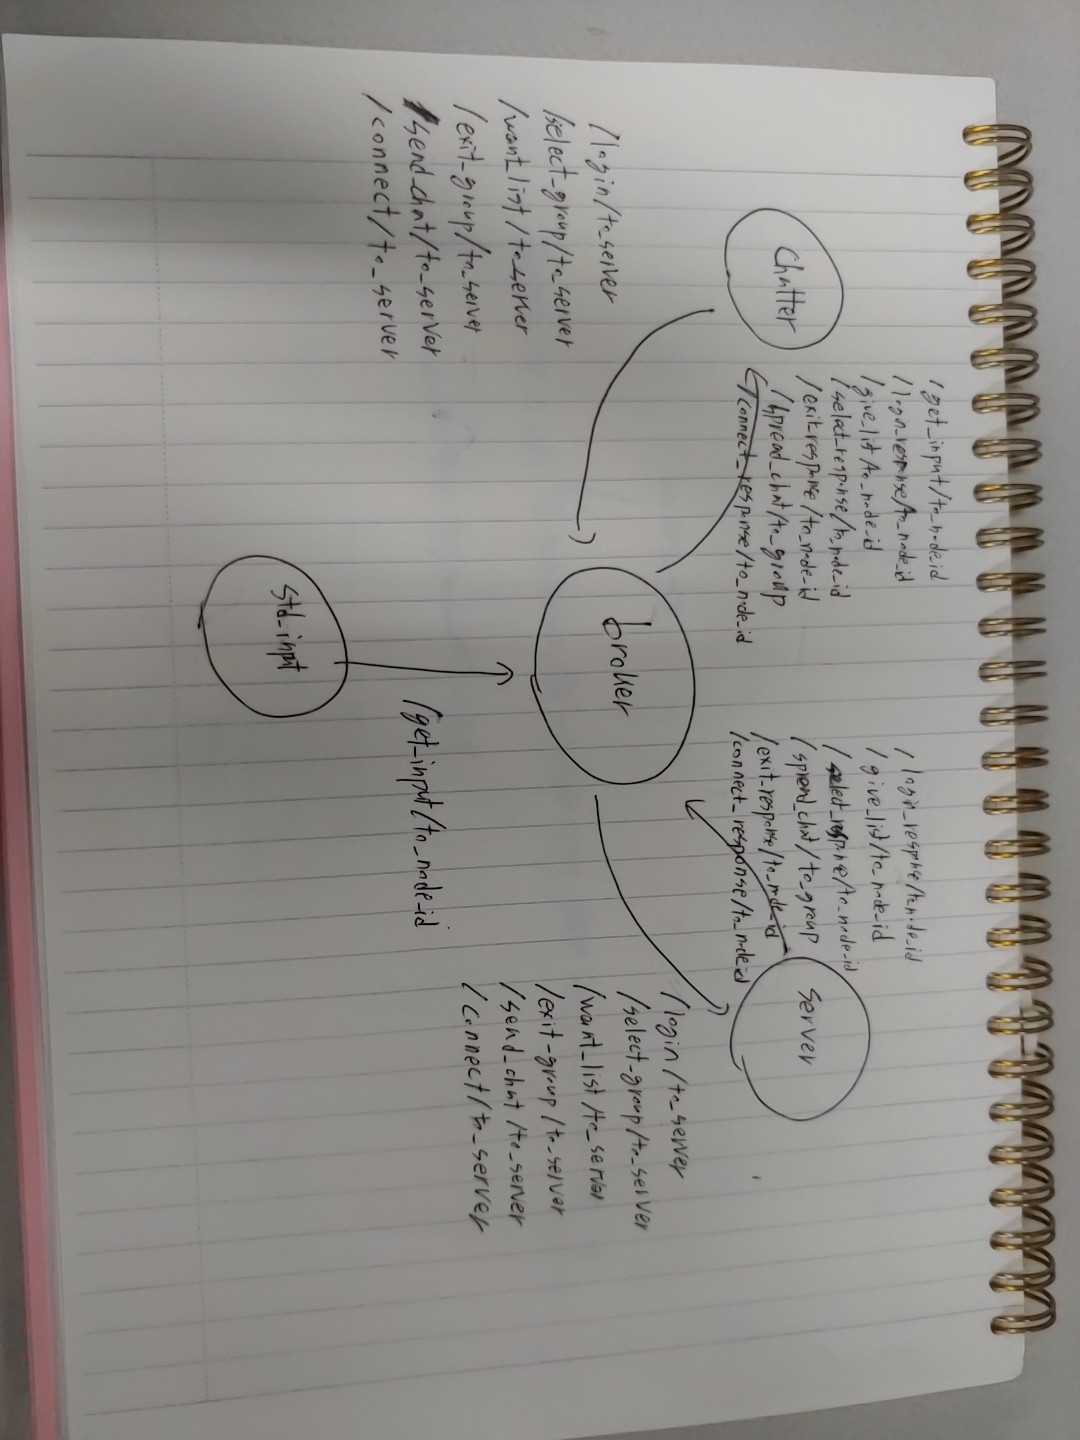 /get_input/to_node_id
/login_response/to_node_id
/give_list/to_node_id
/select_response/to_node_id
/exit_response/to_node_id
/spread_chat/to_group
/connect_response/to_node_id
/login_response/to_node_id
/give_list/to_node_id
/select_response/to_node_id
/spread_chat/to_group
/exit_response/to_node_id
/connect_response/to_node_id
Chatter
server
broker
/login/to_server
/select_group/to_server
/want_list/to_server
/exit_group/to_server
/send_chat/to_server
/connect/to_server
/login/to_server
/select_group/to_server
/want_list/to_server
/exit-group/to_server
/send_chat/to_server
/connect/to_server
/get_input/to_node_id
std_input